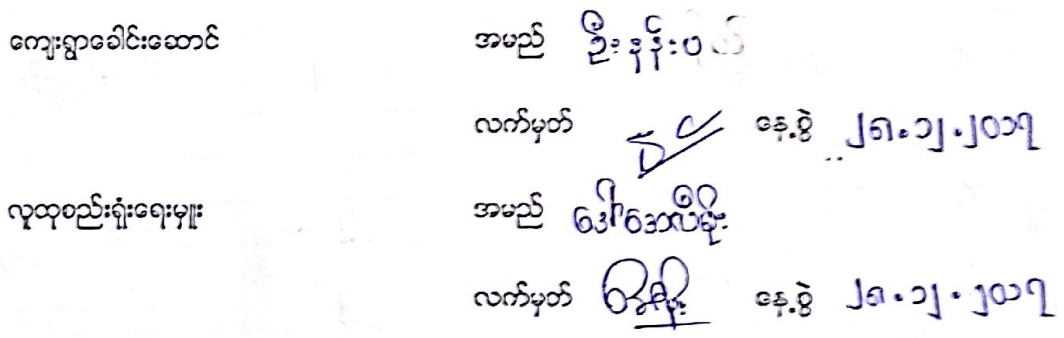 ကျေးရွာခေါင်းဆောင် အမည် ဦးနန်း
လက်မှတ် နေ့စွဲ ၂၈.၁၂.၂၀၁၇
လူထုစည်းရုံးရေးမှူး အမည် ဒေါ်အေလီမိုး
လက်မှတ် နေ့စွဲ ၂၈.၁၂.၂၀၁၇